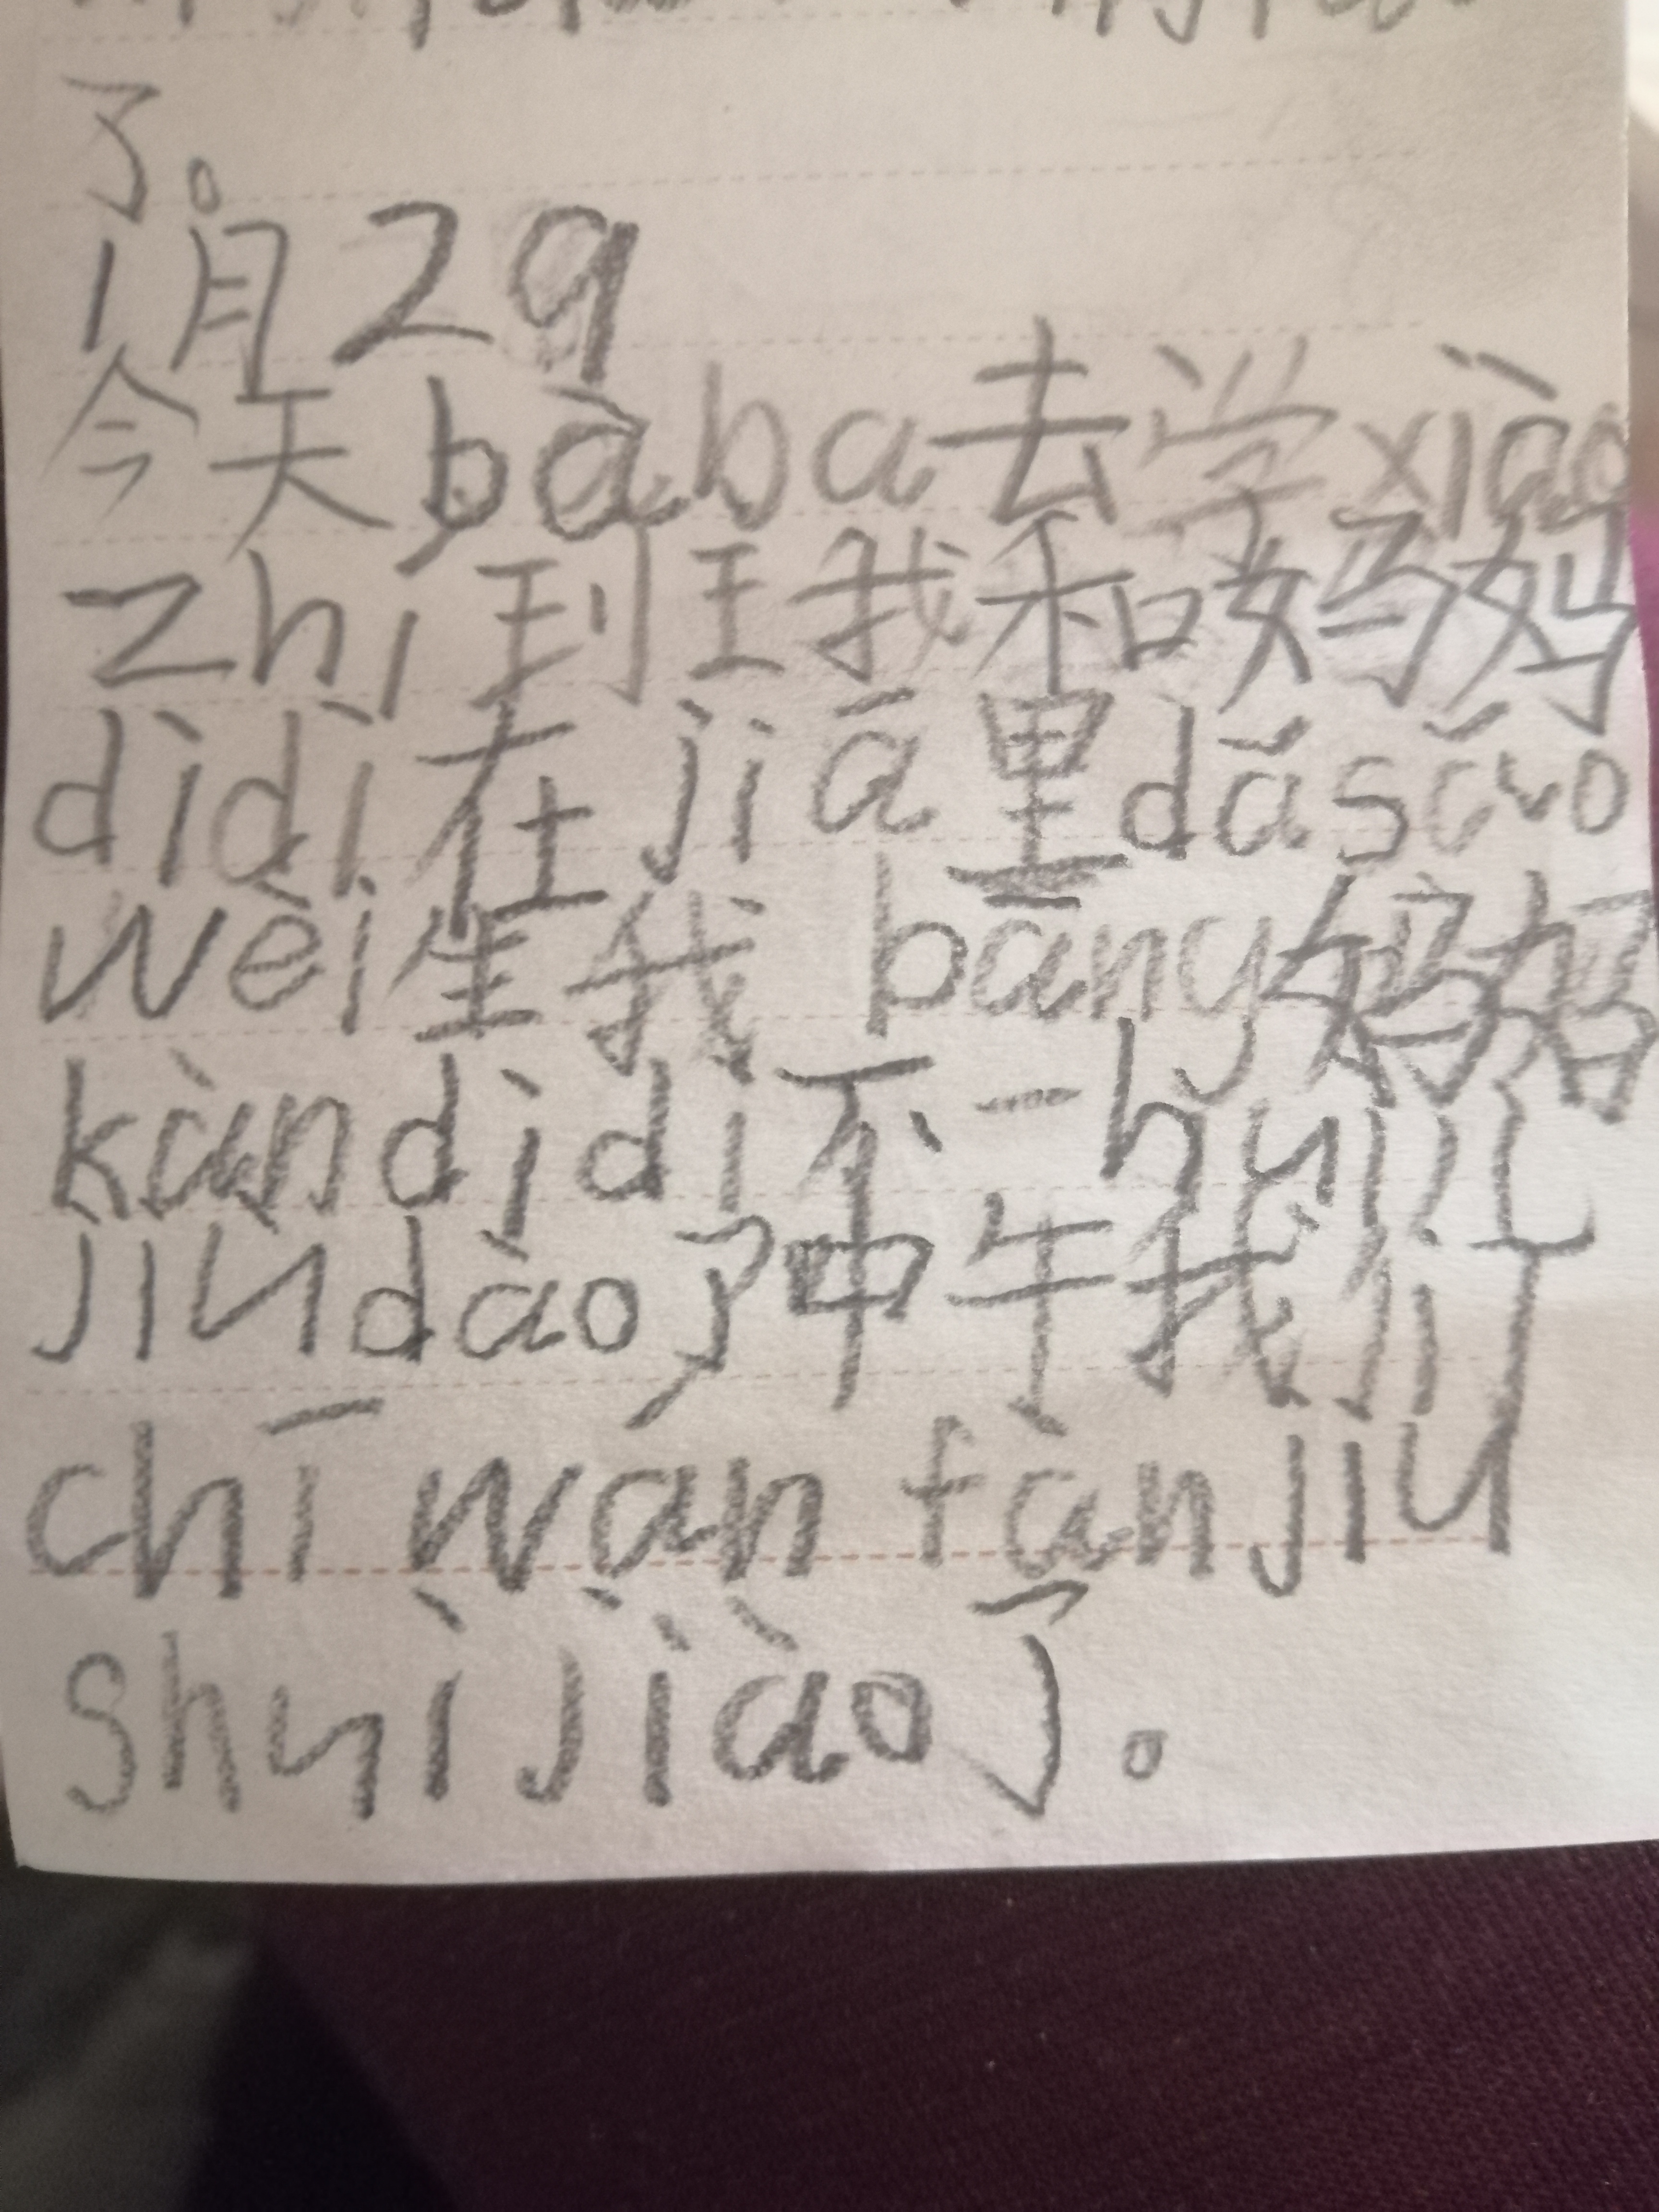 了。
1月29
今天bàba去学xiào
zhí到王我和妈妈
dìdi在jiā里dǎsǎo
wèi生我 bāng妈妈
kàndìdi不一huìjiǔ
jiùdào了中午我jiù
chī wán fànjiù
shuìjiào了。